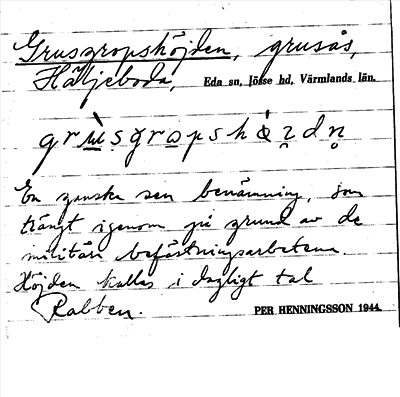 Grusgropshöjden, grusås,
Häljeboda, Eda sn, Jösse hd, Värmlands län.
En ganska sen benämning, som
trängt igenom på grund av de
militära befästningsarbetena.
Höjden kallas i dagligt tal
Rabben.
PER HENNINGSSON 1944.